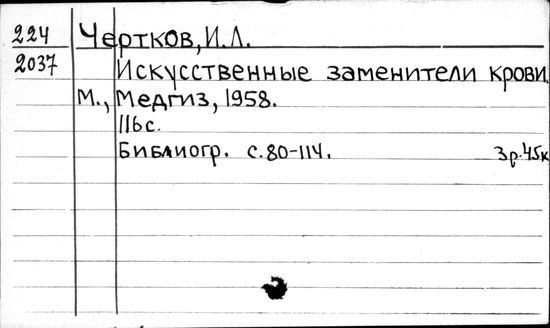 224 Чертков, И.Л.
2037 Искусственные заменители крови.
М., Медгиз, 1958.
116с.
Библиогр. с.80-114. 3р.45к